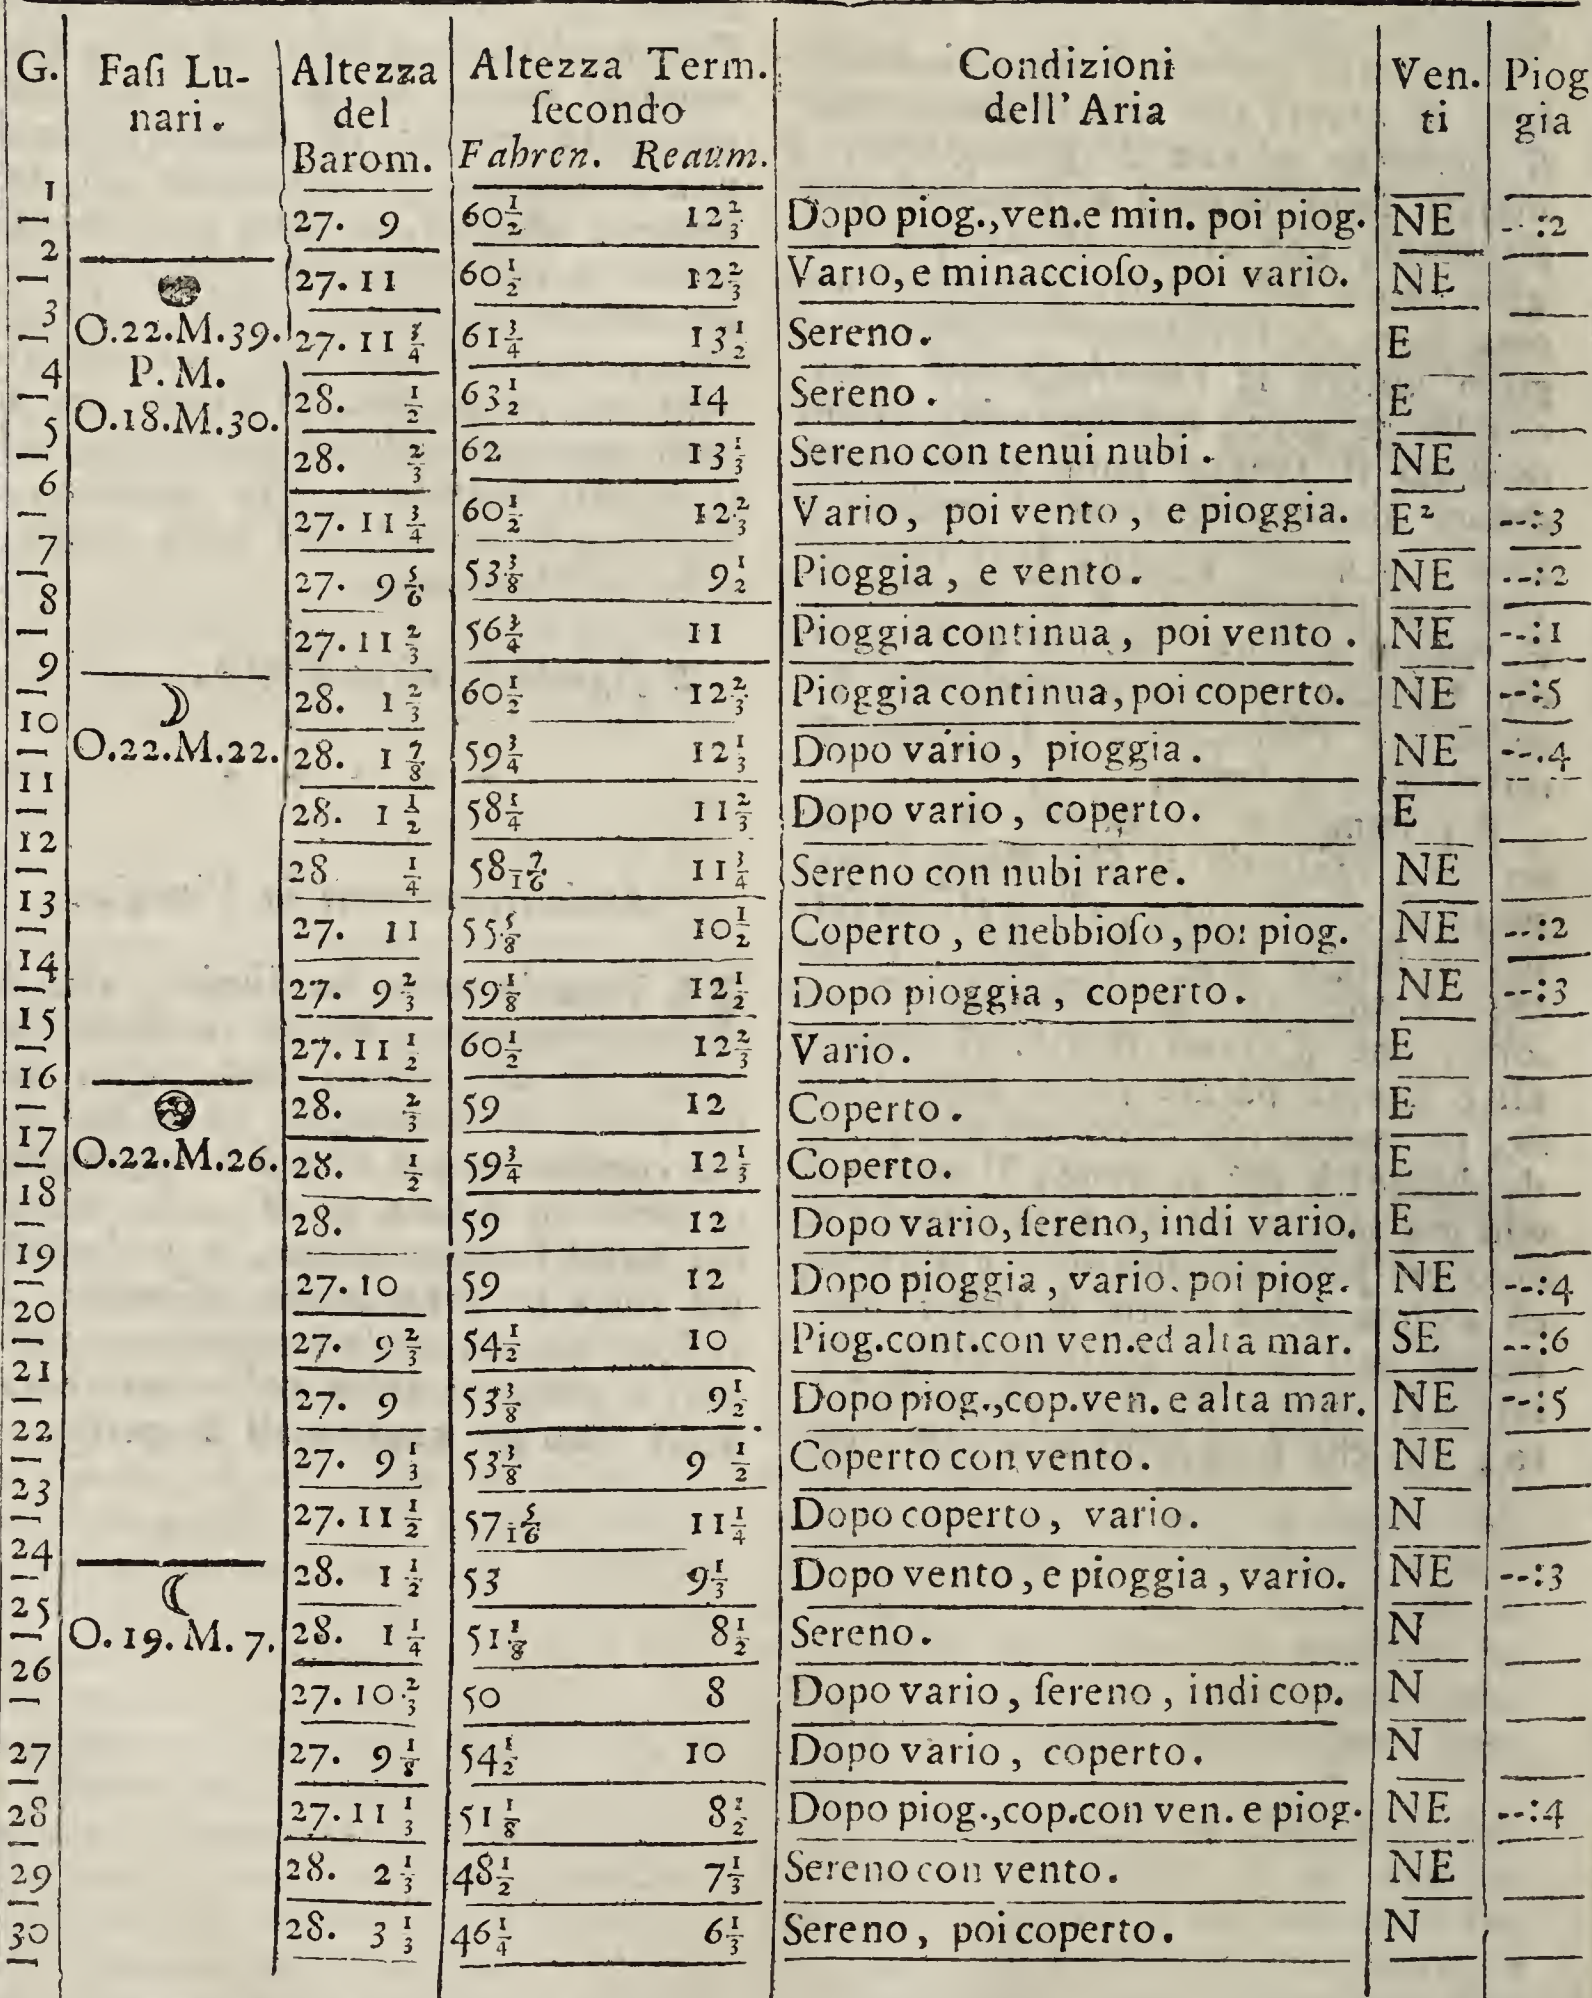 G. Faſi Lu- Altezza Altezza Term. Condizioni Ven. Piog
nari. del ſecondo dell' Aria ti gia
Barom. Fahren. Reaum.
1 27. 9 60 1/2 12 2/3 Dopo piog.,ven.e min. poi piog. NE --:2
2 27. 11 60 1/2 12 2/3 Vario, e minaccioſo, poi vario. NE
3 O.22.M.39. 27. 11 3/4 61 3/4 13 1/2 Sereno. E
4 P. M. 28. 1/2 63 1/2 14 Sereno. E
5 O.18.M.30. 28. 2/3 62 13 1/3 Sereno con tenui nubi. NE
6 27. 11 3/4 60 1/2 12 2/3 Vario, poi vento, e pioggia. E² --:3
7 27. 9 5/6 53 3/8 9 1/2 Pioggia, e vento. NE --:2
8 27. 11 2/3 56 3/4 11 Pioggia continua, poi vento. NE --:1
9 28. 1 2/3 60 1/2 12 2/3 Pioggia continua, poi coperto. NE --:5
10 ☽ O.22.M.22. 28. 1 7/8 59 3/4 12 1/3 Dopo vario, pioggia. NE --.4
11 28. 1 1/2 58 1/4 11 2/3 Dopo vario, coperto. E
12 28 1/4 58 7/16 11 3/4 Sereno con nubi rare. NE
13 27. 11 55 5/8 10 1/2 Coperto, e nebbioſo, poi piog. NE --:2
14 27. 9 2/3 59 1/8 12 1/2 Dopo pioggia, coperto. NE --:3
15 27. 11 1/2 60 1/2 12 2/3 Vario. E
16 28. 2/3 59 12 Coperto. E
17 O.22.M.26. 28. 1/2 59 3/4 12 1/3 Coperto. E
18 28. 59 12 Dopo vario, ſereno, indi vario. E
19 27. 10 59 12 Dopo pioggia, vario. poi piog. NE --:4
20 27. 9 2/3 54 1/2 10 Piog.cont.con ven.ed alta mar. SE --:6
21 27. 9 53 3/8 9 1/2 Dopo piog.,cop.ven. e alta mar. NE --:5
22 27. 9 1/3 53 3/8 9 1/2 Coperto con vento. NE
23 27. 11 1/2 57 5/16 11 1/4 Dopo coperto, vario. N
24 28. 1 1/2 53 9 1/3 Dopo vento, e pioggia, vario. NE --:3
25 ☾ O. 19. M. 7. 28. 1 1/4 51 1/8 8 1/2 Sereno. N
26 27. 10 2/3 50 8 Dopo vario, ſereno, indi cop. N
27 27. 9 1/8 54 1/2 10 Dopo vario, coperto. N
28 27. 11 1/3 51 1/8 8 1/2 Dopo piog.,cop.con ven. e piog. NE --:4
29 28. 2 1/3 48 1/2 7 1/3 Sereno con vento. NE
30 28. 3 1/3 46 1/4 6 1/3 Sereno, poi coperto. N